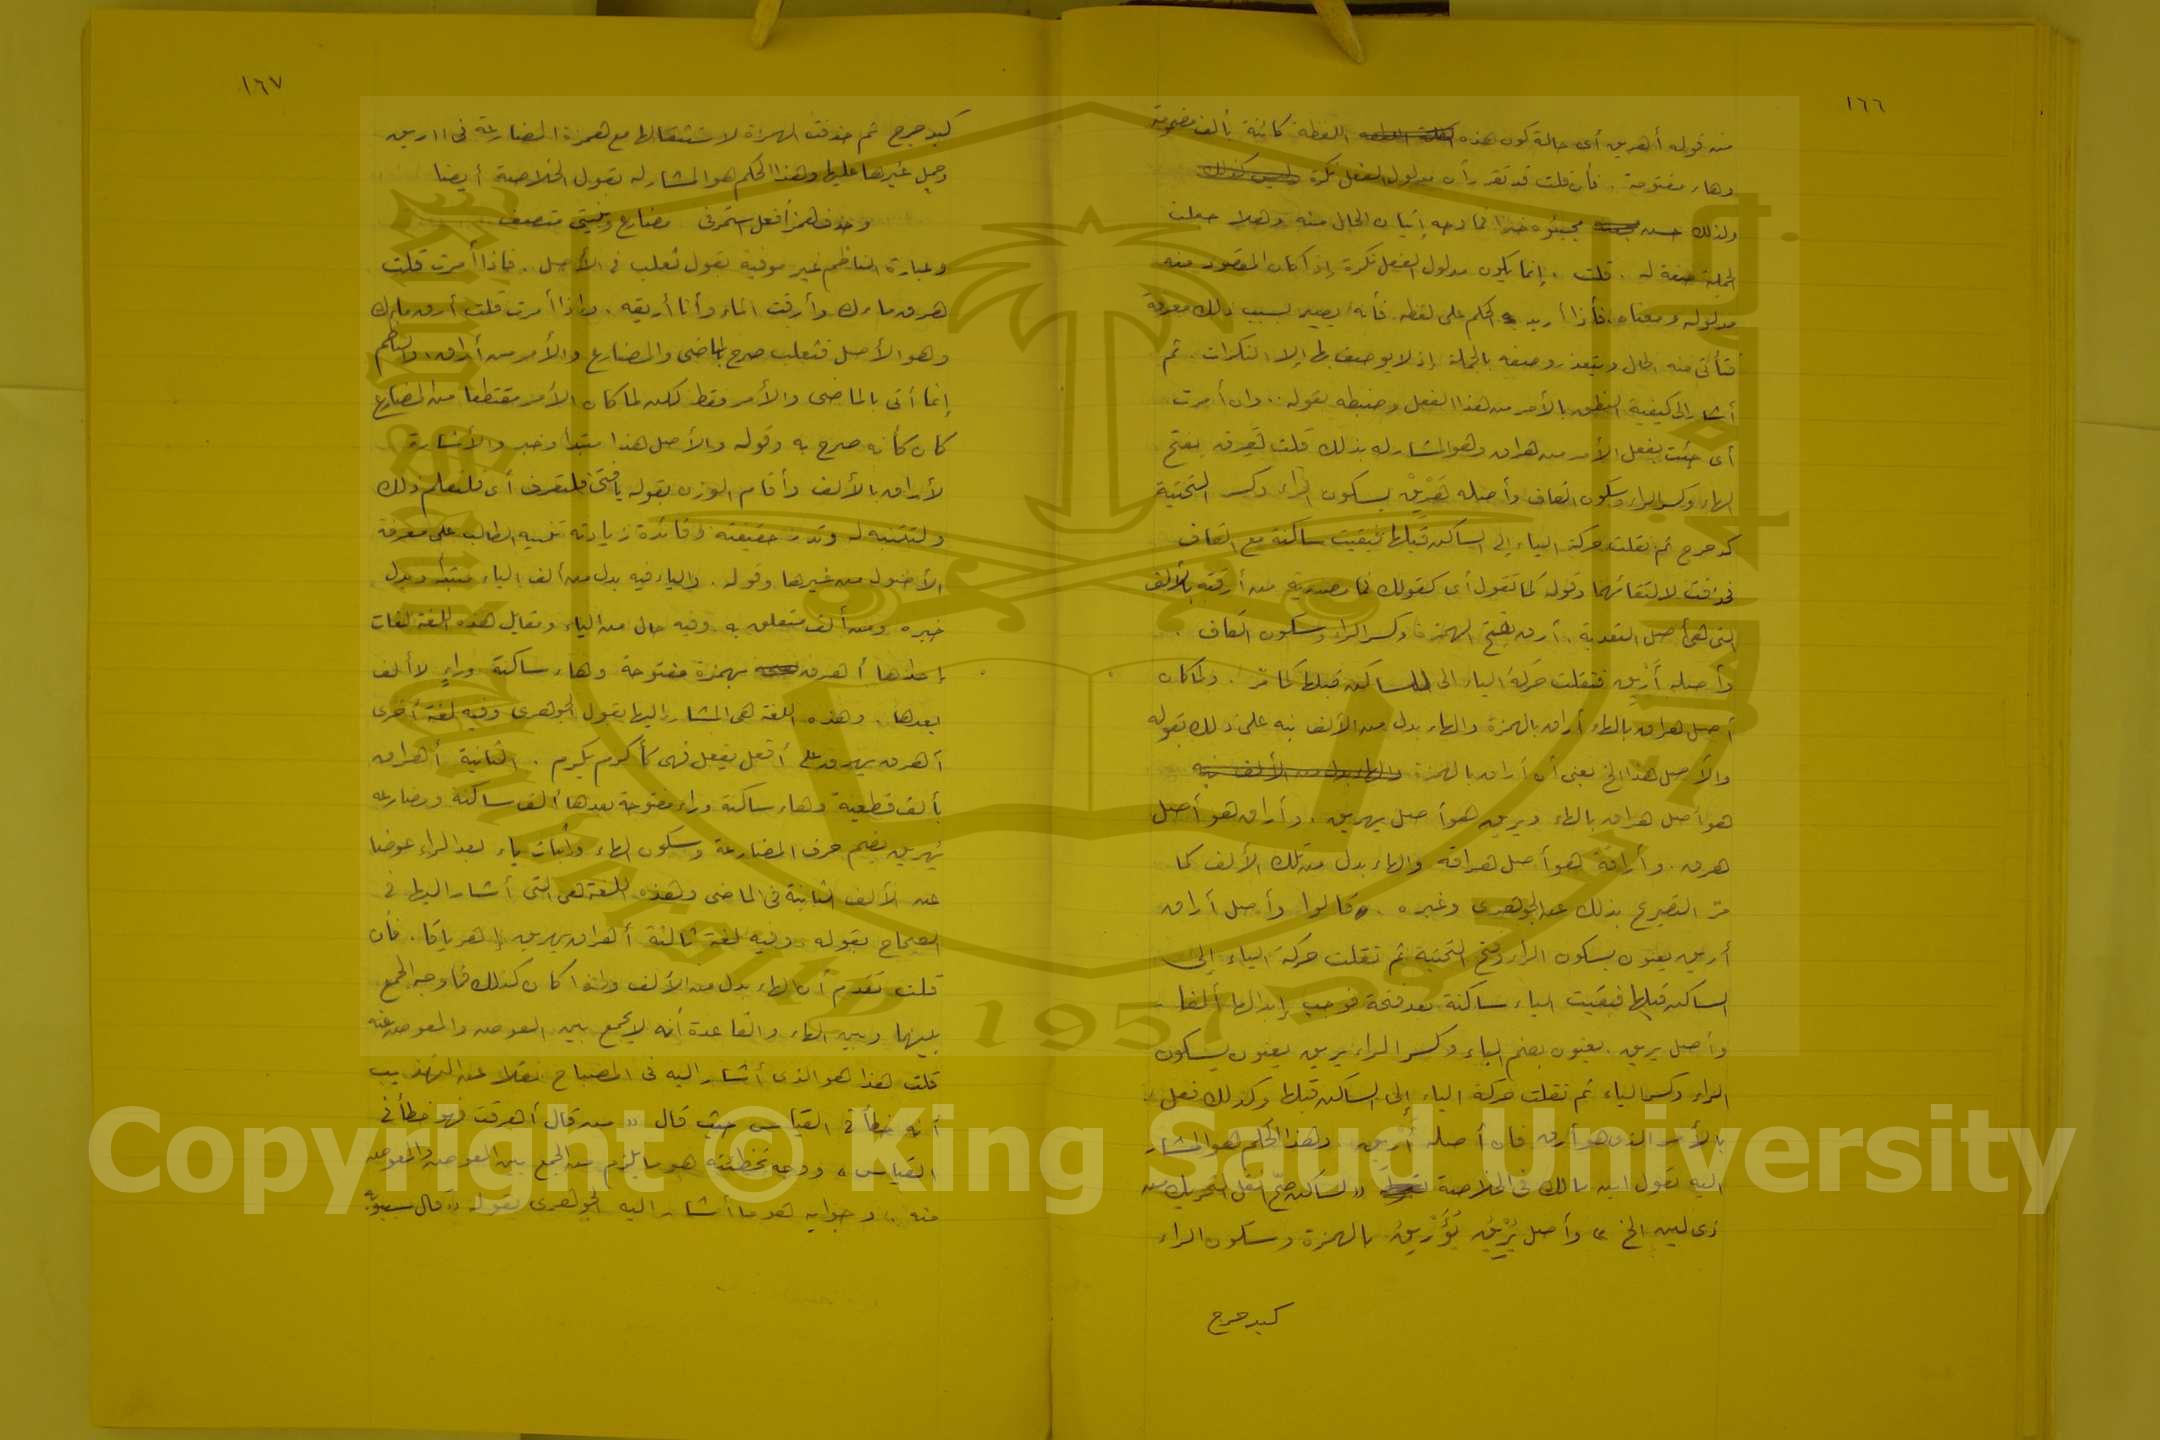 ١٦٦
من قوله أهريق أى حالة كون هذه اللفظة كائنة بألف مضمومة
وهاء مفتوحة . فأن قلت قد تقرر أن مدلول الفعل نكرة وليس كذلك
ولذلك حسن مجيئوه خبرا فما وجه إتيان الحال منه وهلا جعلت
الجملة صفة له . قلت . إنما يكون مدلول الفعل نكرة إذا كان المقصود منه
مدلوله ومعناه فأذا أريد الحكم على لفظه فأنه يصير بسبب ذلك معرفة
فتأتى منه الحال ويتعذر وصفه بالجملة إذ لا يوصف بها إلا النكرات . ثم
أشار الى كيفية النطق بالأمر من هذا الفعل وضبطه بقوله .. وان أمرت
أى جئت بفعل الأمر من هراق وهو المشار له بذلك قلت هَرِق بفتح
الهاء وكسر الراء وسكون القاف وأصله هَرْيِقْ بسكون الراء وكسر التحتية
كدحرج ثم نقلت حركة الياء إلى الساكن قبلها فبقيت ساكنة مع القاف
فحذفت لالتقائهما وقوله كما تقول أى كقولك فما مصدرية من أرقته بالألف
التى هى أصل التعدية . أرق بفتح الهمزة وكسر الراء وسكون القاف .
وأصله أَرْيِق فنقلت حركة الياء الى الساكن قبلها كما مر . ولما كان
أصل هراق بالهاء أراق بالهمزة والهاء بدل من الألف نبه على ذلك بقوله
والأصل هذا الخ يعنى أن أراق بالهمزة والهاء بدل من الألف نبه
هو أصل هراق بالهاء ويريق هو أصل يهريق . وأراق هو أصل
هرق . وأراقة هو أصل هراقة والهاء بدل من تلك الألف كما
مر التصريح بذلك عن الجوهرى وغيره . قالوا وأصل أراق
أريق يعنون بسكون الراء وفتح التحتية ثم نقلت حركة الياء إلى
الساكن قبلها فبقيت الياء ساكنة بعد فتحة فوجب إبدالها ألفا .
وأصل يريق . يعنون بضم الياء وكسر الراء يريق يعنون بسكون
الراء وكسر الياء ثم نقلت حركة الياء إلى الساكن قبلها وكذلك فعل
بالأمر الذى هو أرق فان أصله أَرْيِق . وهذا الحكم هو المشار
اليه بقول ابن مالك فى الخلاصة « لساكن صح انقل التحريك من
ذى لين الخ » وأصل يُرْيِقُ يُؤَرْيِقُ بالهمزة وسكون الراء
كيدحرج
١٦٧
كيدحرج ثم حذفت الهمزة لاستثقالها مع همزة المضارعة فى أأريق
وحمل غيرها عليها وهذا الحكم هو المشار له بقول الخلاصة أيضا
وحذف همز أفعل استمر فى مضارع وبنيتى متصف
وعبارة الناظم غير موفية بقول ثعلب فى الأصل . فاذا أمرت قلت
هرق ماءك وأرقت الماء وأنا أريقه . واذا أمرت قلت أرق ماءك
وهو الأصل فثعلب صرح بالماضى والمضارع والأمر من أراق والناظم
إنما أتى بالماضى والأمر فقط لكن لما كان الأمر مقتطعا من المضارع
كان كأنه صرح به وقوله والأصل هذا مبتدأ وخبر والأشارة
لأراق بالألف وأقام الوزن بقوله يا فتى فلتعرف أى فلتعلم ذلك
ولتتنبه له وتدر حقيقته وفائدة زيادته تنبيه الطالب على معرفة
الأصول من غيرها وقوله . والياء فيه بدل من ألف الياء مبتدأ وبدل
خبره ومن ألف متعلق به وفيه حال من الياء ومقابل هذه اللغة لغات
إحداها أهرق بهمزة مفتوحة وهاء ساكنة وراء لا ألف
بعدها . وهذه اللغة هى المشار إليها بقول الجوهرى وفيه لغة أخرى
أهرق يهرق على أفعل يفعل فهى كأكرم يكرم . الثانية أهراق
بألف قطعية وهاء ساكنة وراء مفتوحة بعدها ألف ساكنة ومضارعه
يُهريق بضم حرف المضارعة وسكون الهاء وأثبات ياء بعد الراء عوضا
عن الألف الثابتة فى الماضى وهذه اللغة هى التى أشار اليها فى
الصحاح بقوله وفيه لغة ثالثة أهراق يهريق إهرياقا . فأن
قلت تقدم أن الهاء بدل من الألف واذا كان كذلك فما وجه الجمع
بينها وبين الهاء والقاعدة أنه لا يجمع بين العوض والمعوض عنه
قلت هذا هو الذى أشار اليه فى المصباح نقلا عن التهذيب
أنه خطأ فى القياس حيث قال « من قال أهرقت فهو خطأ فى
القياس » ووجه تخطئته هو ما يلزم من الجمع بين العوض والمعوض
منه . وجوابه هو ما أشار اليه الجوهرى بقوله « قال سيبويه
1957
Copyright © King Saud University